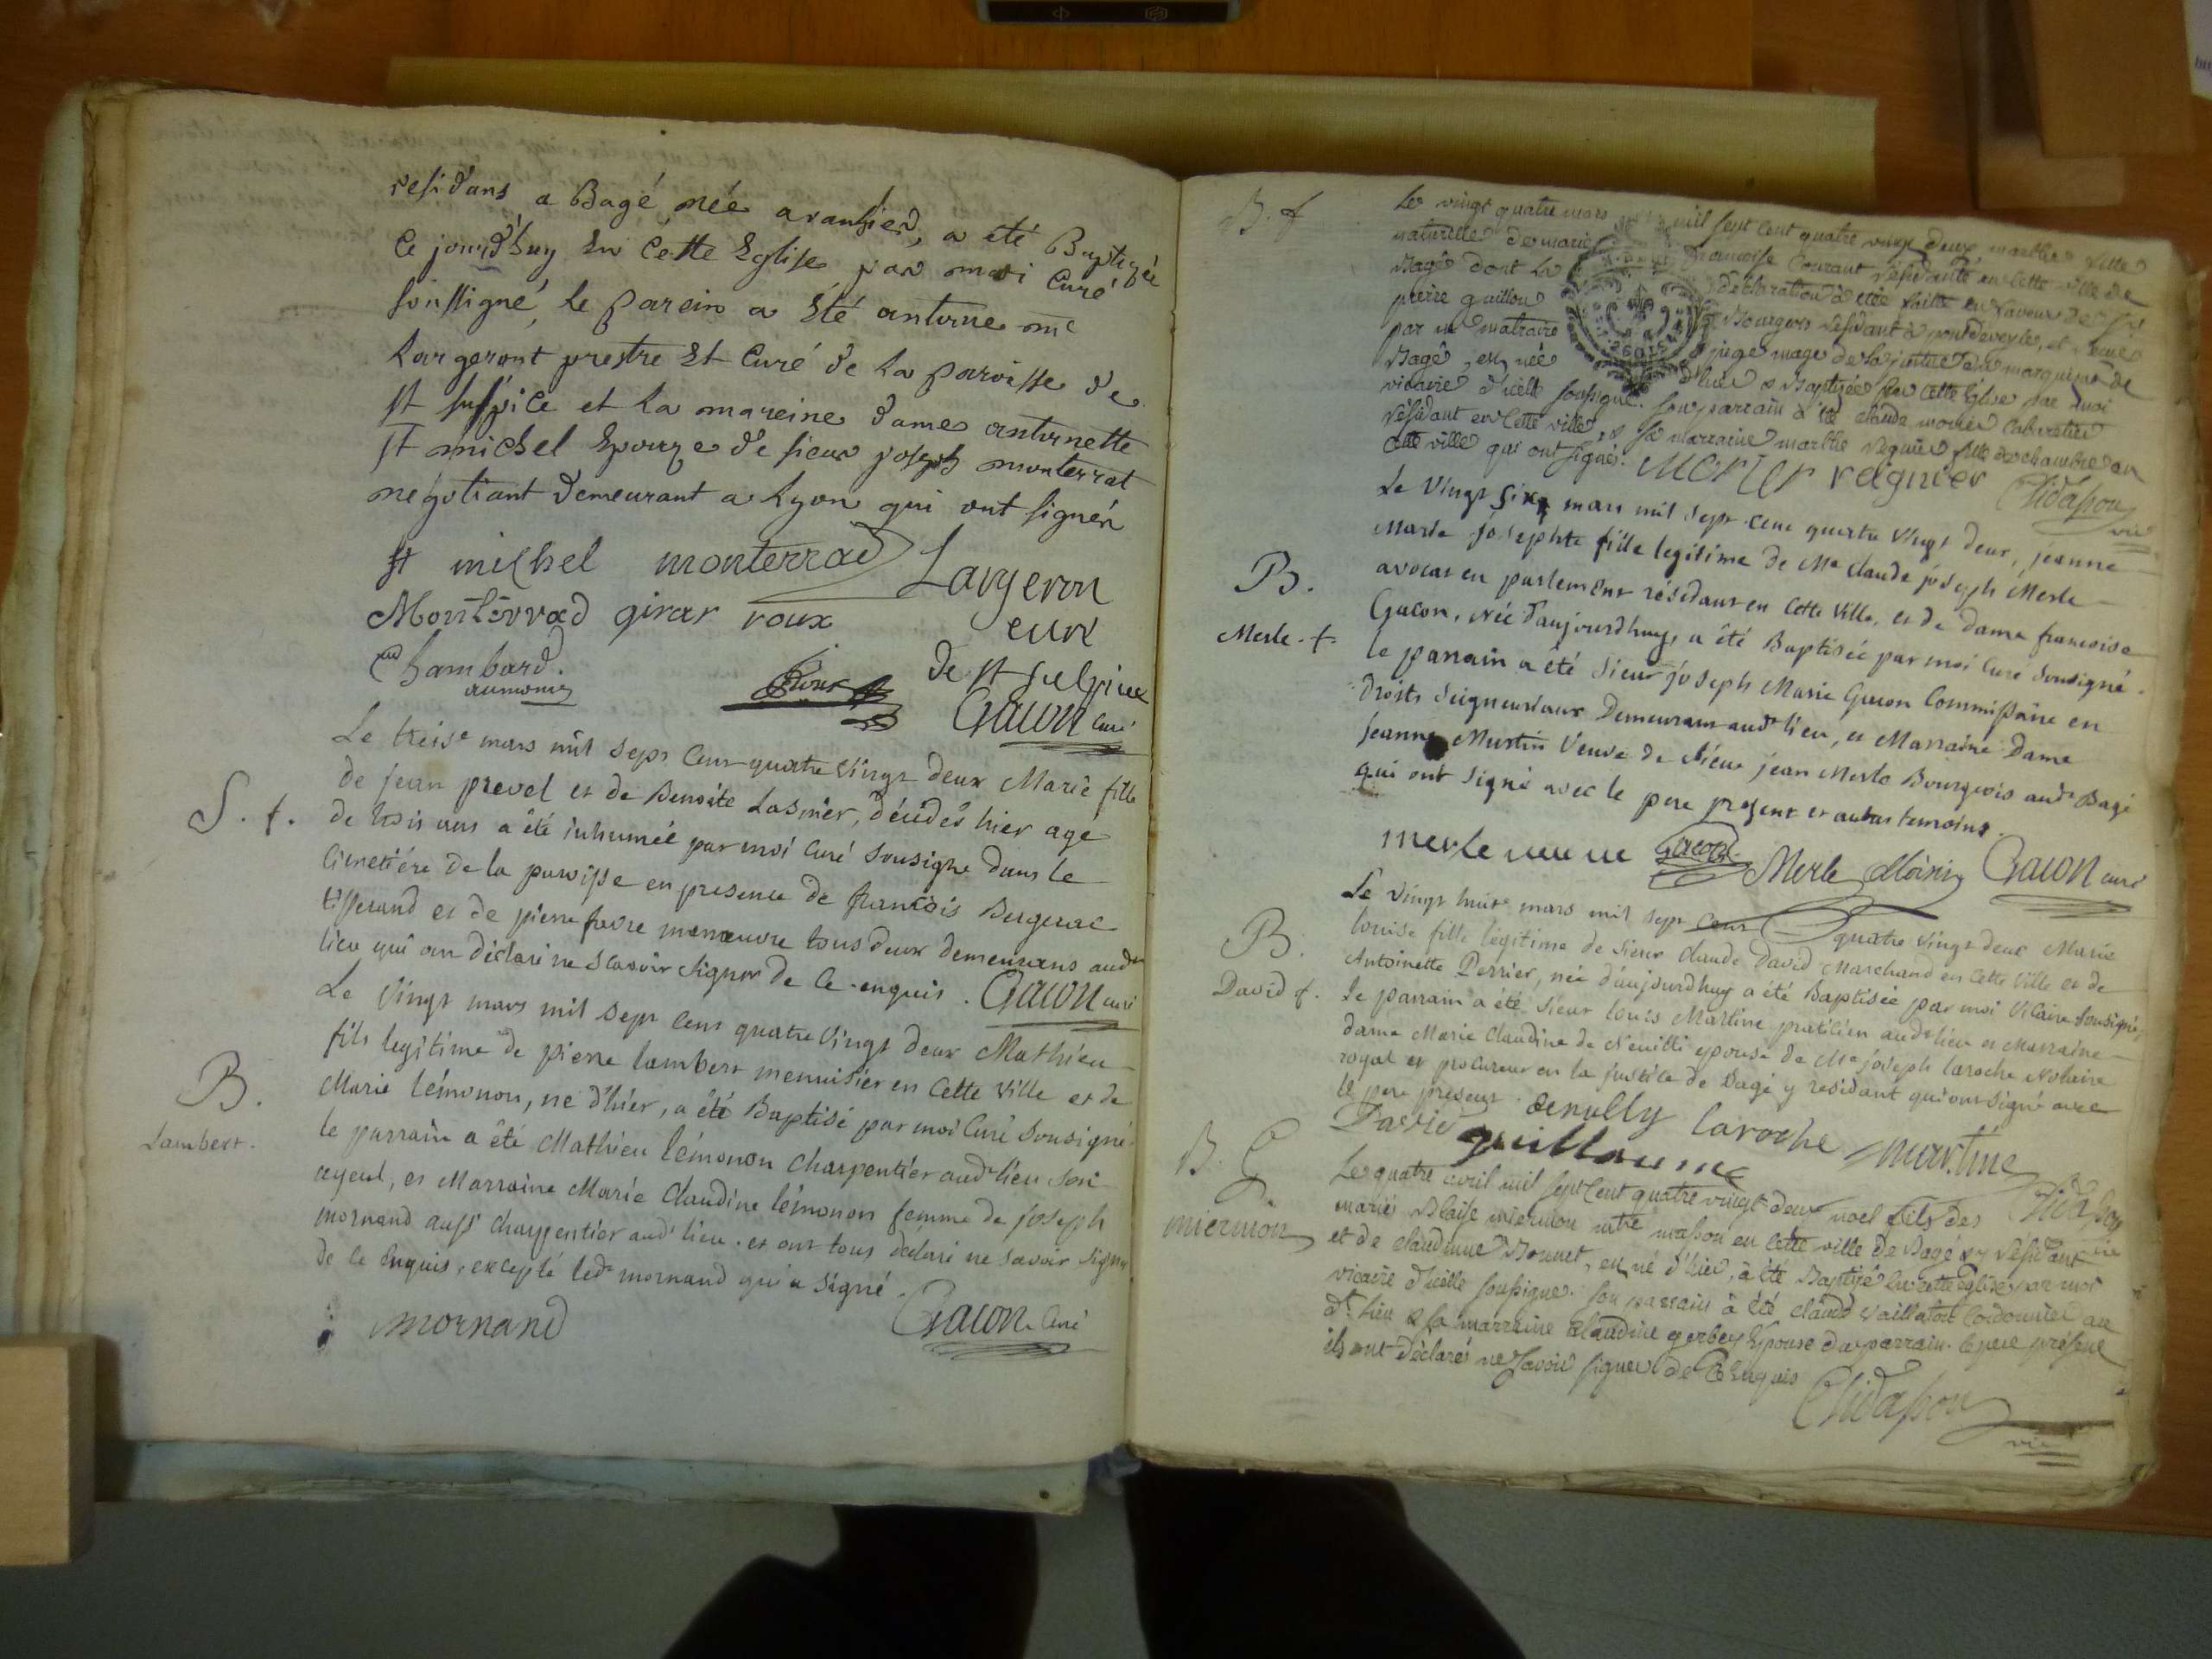 residans a Bagé née avanhier, a été Baptizée
Ce jourd'huy En Cette Eglise par moi Curé
soussigné, le parein a Été antoine mc
Largeront prestre Et Curé de La paroisse de
st sulpice et La mareine dame antoinette
st michel Epouze de sieur joseph monterrat
negotiant demeurant a Lyon qui ont signés
st michel monterrad Largeron
Monterrad girar roux curé
Chambard. de st sulpice
aumonier
Gacon Curé
Le treise mars mil sept Cent quatre Vingt deux Marie fille
S. f. de jean prevel et de Benoite Lasnier, décédés hier age
de trois ans a été inhumée par moi Curé Sousigne dans le
Cimetiére de la paroisse en presence de françois Bergerac
tisserand et de pierre favre manœuvre tous deux demeurans audt
lieu qui ont déclaré ne Scavoir Signer de Ce enquis. Gacon curé
Le Vingt mars mil Sept Cent quatre Vingt deux Mathieu
B. fils legitime de pierre lambert menuisier en Cette Ville et de
Lambert. Marie lémonon, né d'hier, a été Baptisé par moi Curé Sousigné.
le parrain a été Mathieu lémonon Charpentier audt lieu son
ayeul, et Marraine Marie Claudine lémonon femme de joseph
mornand aussi charpentier audt lieu. et ont tous declaré ne Savoir Signer
de Ce Enquis, excepté ledt mornand qui a Signé.
mornand Gacon Curé
B. f Le vingt quatre mars mil sept Cent quatre vingt deux, marthe fille
naturelle de marie françoise Courant Residante en Cette ville de
Bagé dont la declaration a etée faitte en faveur de Sr
pierre guillon Bourgeois Résidant à pontdeveyle, et
par mr matraire juge mage de la justice du marquisat de
Bagé, est née d'hier & Baptizée En Cette Eglise par moi
vicaire d'icelle soussigné. Son parrain à été claude morier Cabaretier
résidant en Cette ville, & sa marraine marthe regnier fille de chambre en
Cette ville qui ont signés. Morier regnier Chidasson
vic
Le Vingt Six mars mil Sept Cent quatre Vingt deux, jeanne
B. Marie josephte fille legitime de Me Claude joseph Merle
avocat en parlement résidant en Cette Ville, et de dame francoise
Merle. f. Gacon, née d'aujourdhuy, a été Baptisée par moi Curé Sousigné.
le parrain a été Sieur joseph Marie Gacon Commissaire en
droits Seigneuriaux Demeurant audt lieu, et Marraine Dame
jeanne Martin Veuve de Sieur jean Merle Bourgeois audt Bagé
qui ont signé avec le pere present et autres temoins.
merle veuve Gacon Merle Gacon curé
Le Vingt huit mars mil sept Cent quatre Vingt deux Marie
B. louise fille légitime de Sieur Claude David Marchand en Cette Ville et de
David f. Antoinette Perrier, née d'aujourdhuy a été Baptisée par moi Vicaire Sousigné,
le parrain a été Sieur louis Martine praticien audt lieu et Marraine
dame Marie Claudine de Neuilli epouse de Me joseph laroche Notaire
royal et procureur en la justice de Bagé y residant qui ont Signé avec
le pere present. denully laroche Martine
David guillaume
B. Le quatre avril mil sept Cent quatre vingt deux noel fils des Chidasson
miermon mariés Blaise miermon mtre masson en Cette ville de Bagé & y Résidant
et de claudinne Bonnet, est né d'hier, à été Baptizé En Cette Eglise par moi
vicaire d'icelle soussigné. Son parrain à été claude Vaillaton Cordonnier au
dt lieu & sa marraine claudine gerbey Epouse du parrain. le pere présent
ils ont déclarés ne savoir signer de Ce Enquis
Chidasson
vic